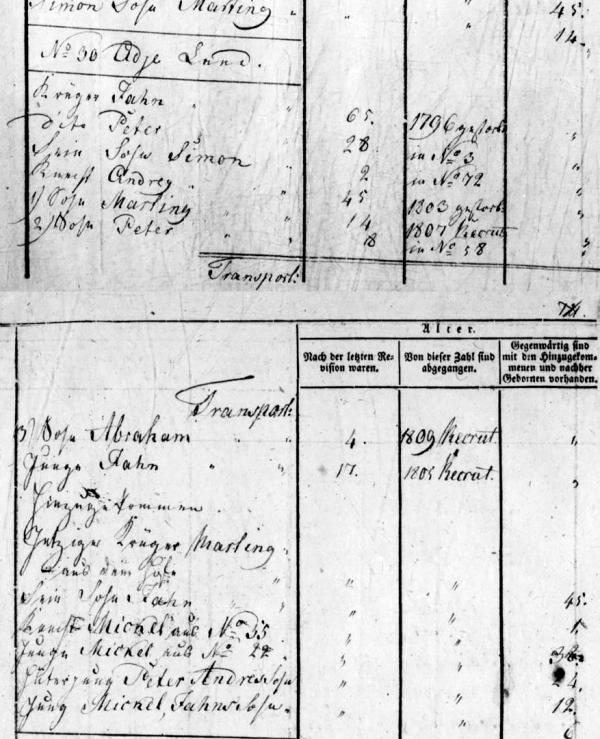 Simon Sohn Marting " " 45.
14.
No 30 Adje Lund.
Krüger Jahn " 65. 1796 gestorb. "
dito Peter " 28 in No 3 "
Sein Sohn Simon " 2 in No 72 "
Knecht Andrey " 45 1803 gestorb. "
1) Sohn Marting " 14 1807 Recrut "
2) Sohn Peter " 18 in No 58 "
Transport:
Alter.
Nach der letzten Revision waren.
Von dieser Zahl sind abgegangen.
Gegenwärtig sind mit den Hinzugekommenen und nachher Gebornen vorhanden.
Transport:
3) Sohn Abraham " " 4. 1809 Recrut. "
Junge Jahn " " 17. 1805 Recrut. "
Hinzugekommen.
Jetziger Krüger Marting
aus dem Hofe " " 45.
Sein Sohn Jahn " " " 1.
Knecht Mickel aus No 35 " "
Junge Mickel aus No 22 " " 24.
Peter Andres Sohn " " 12.
Jung Mickel, Jahns Sohn " " 6